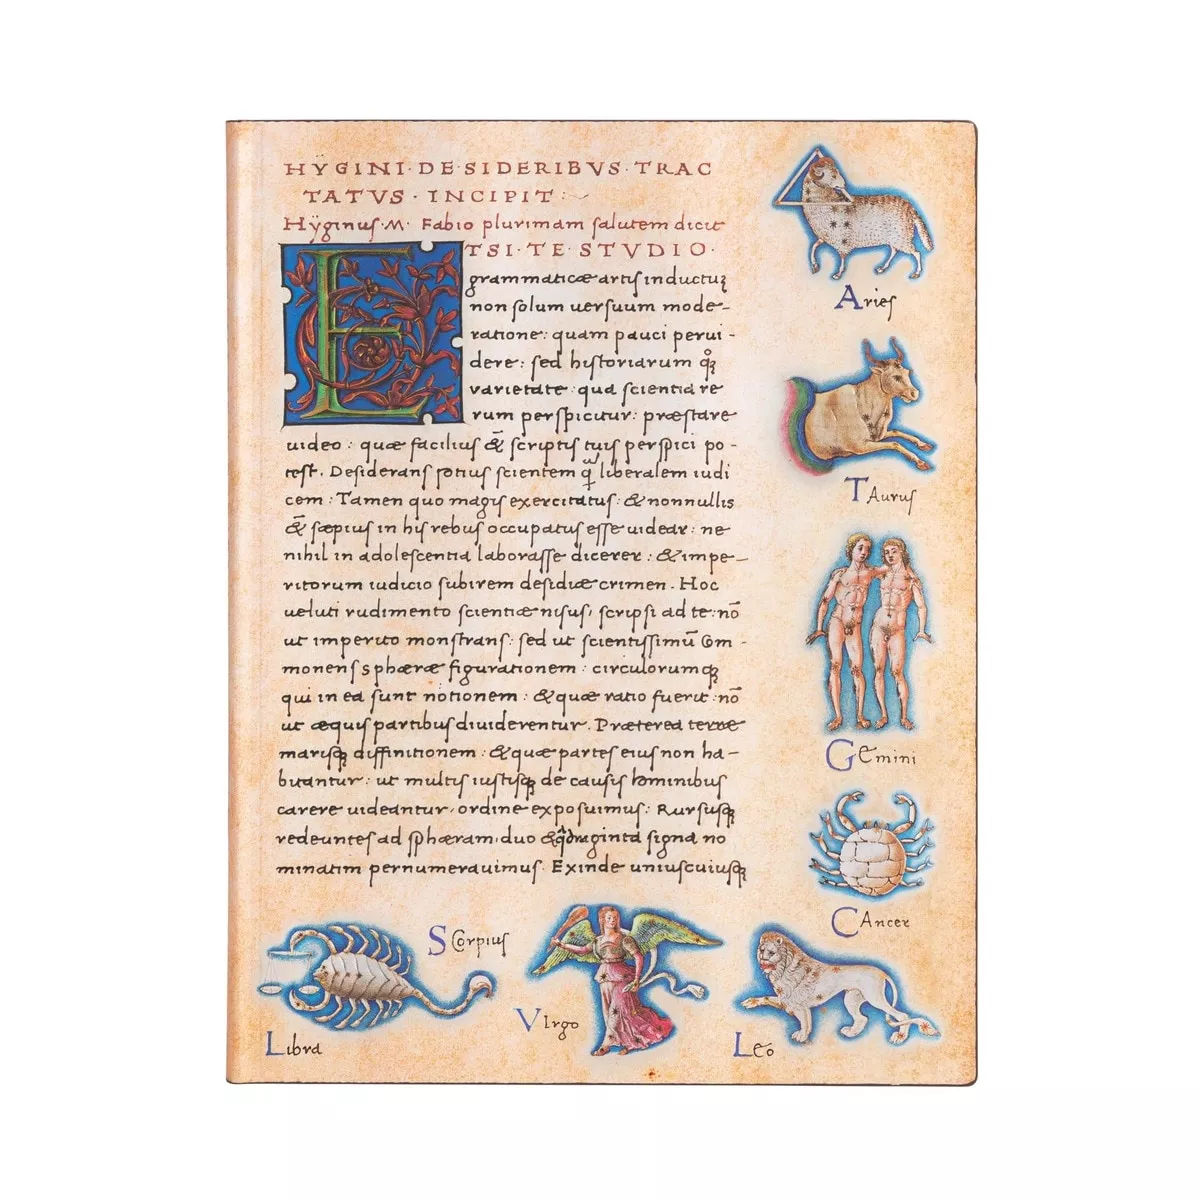 HŸGINI · DE · SIDERIBVS · TRAC
TATVS · INCIPIT :
Hÿginus · M · Fabio plurimam salutem dicit
ETSI · TE · STVDIO ·
grammaticæ artis inductuꝫ
non solum versuum mode-
ratione: quam pauci pervi-
dere: sed historiarum qꝫ
varietate qua scientia re-
rum perspicitur: præstare
video: quæ facilius & scriptis tuis perspici po-
test. Desiderans potius scientem q̃ liberalem iudi
cem: Tamen quo magis exercitatus: & nonnullis
& sæpius in his rebus occupatus esse videar: ne
nihil in adolescentia laborasse dicerer: & impe-
ritorum iudicio subirem desidiæ crimen. Hoc
veluti rudimento scientiæ nisus, scripsi ad te: nō
ut imperito monstrans: sed ut scientissimū Com-
monens sphæræ figurationem: circulorumqꝫ
qui in ea sunt notionem: & quæ ratio fuerit: nō
ut æquis partibus dividerentur. Præterea terræ
marisqꝫ diffinitionem: & quæ partes eius non ha-
bitantur: ut multis iustisqꝫ de causis hominibus
carere videantur, ordine exposuimus: Rursusqꝫ
redeuntes ad sphæram, duo & qdraginta signa no
minatim pernumeravimus. Exinde uniuscuiusqꝫ
Aries
Taurus
Gemini
Cancer
Leo
Virgo
Scorpius
Libra